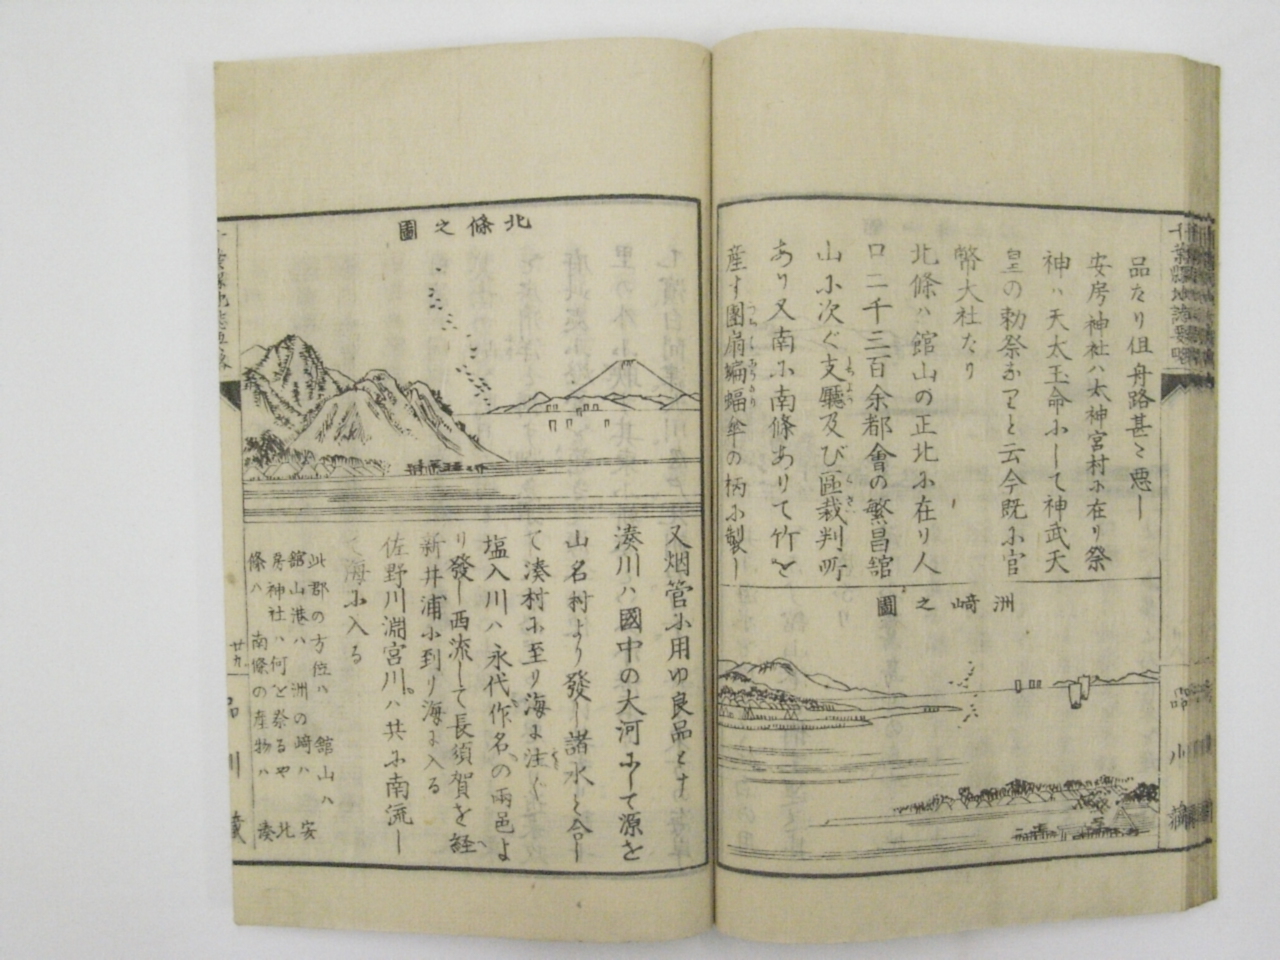 品たり但舟路甚〻悪し
安房神社ハ太神宮村ホ在リ祭
神ハ天太玉命ホして神武天
皇の勅祭なりと云今既ホ官
幣大社たり
北條ハ館山の正北ホ在リ人
口二千三百余都會の繁昌舘
山ホ次ぐ支廳及び區裁判所
あり又南ホ南條ありて竹を
産す團扇蝙蝠傘の柄ホ製し
洲﨑之圖
北條之圖
又烟管ホ用ゆ良品とす
湊川ハ國中の大河ホして源を
山名村より發し諸水と合し
て湊村ホ至り海に注ぐ
塩入川ハ永代作名の兩邑よ
り發し西流して長須賀を経
新井浦ホ到り海に入る
佐野川淵宮川ハ共ホ南流し
て海ホ入る
此郡の方位ハ 舘山ハ
舘山港ハ 洲の﨑ハ 安
房神社ハ何を祭るや 北
條ハ 南條の産物ハ 湊
廿九